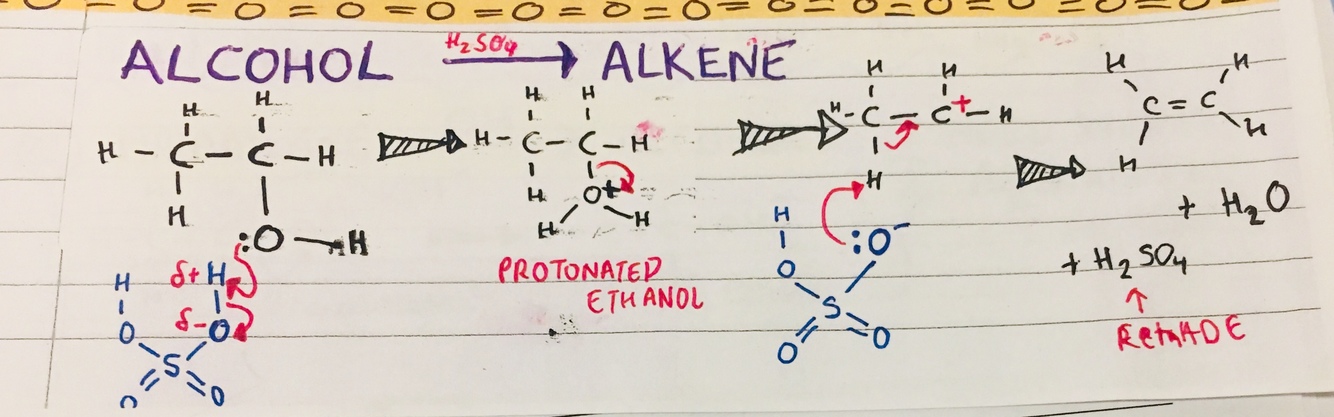 ALCOHOL H₂SO₄ → ALKENE
H H
H – C – C – H
H
:O – H
δ+ H
H
δ- O
O
S
O O
H H
H – C – C – H
H O+
H H
PROTONATED
ETHANOL
H H
H - C – C+ – H
H
H
:O⁻
O
S
O O
H H
C = C
H H
+ H₂O
+ H₂SO₄
↑
RemADE